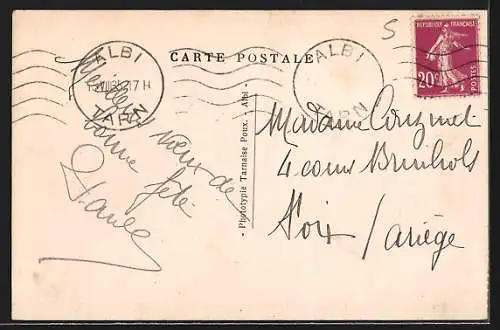 CARTE POSTALE
ALBI
TARN
ALBI
TARN
REPUBLIQUE FRANÇAISE
20c
POSTES
S
vœux de
bonne fête
- Phototypie Tarnaise Poux. - Albi -
Madame
4 cours
Foix / Ariège